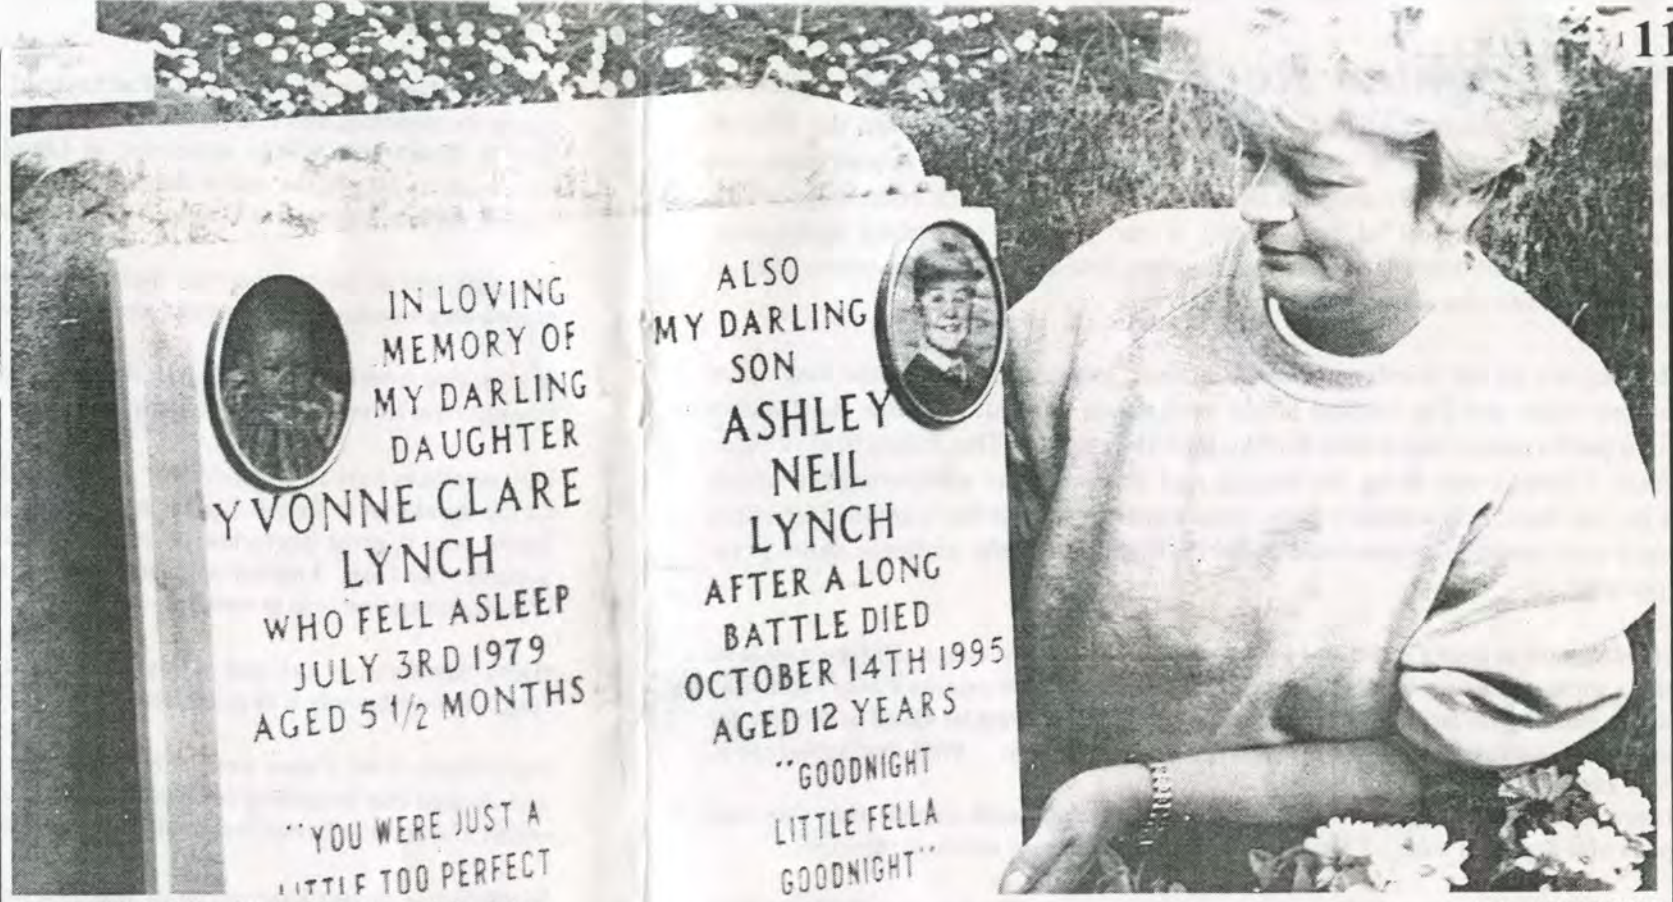 11
IN LOVING
MEMORY OF
MY DARLING
DAUGHTER
YVONNE CLARE
LYNCH
WHO FELL ASLEEP
JULY 3RD 1979
AGED 5 1/2 MONTHS
"YOU WERE JUST A
LITTLE TOO PERFECT
ALSO
MY DARLING
SON
ASHLEY
NEIL
LYNCH
AFTER A LONG
BATTLE DIED
OCTOBER 14TH 1995
AGED 12 YEARS
"GOODNIGHT
LITTLE FELLA
GOODNIGHT"